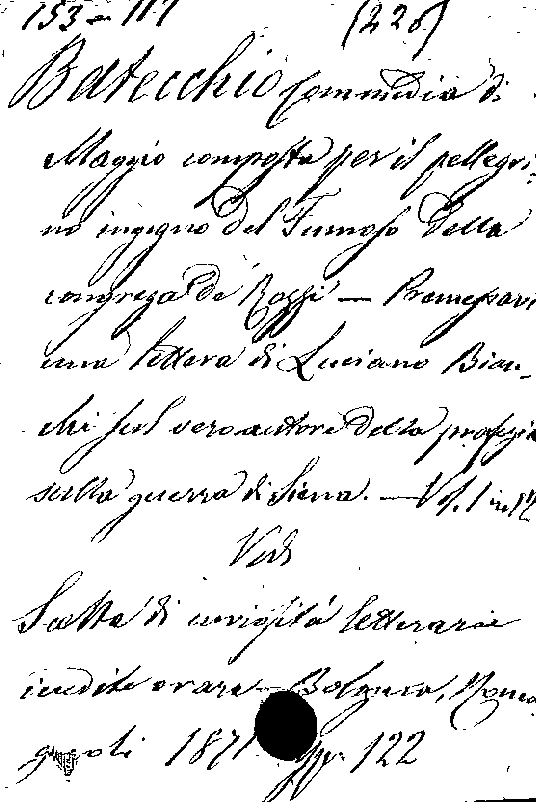 153 = 117 (228)
Batecchio Commedia di
Maggio composta per il pellegri-
no ingegno del Fumoso della
congrega de' Rozzi — Premessavi
una lettera di Luciano Bian-
chi sul vero autore della profezia
sulla guerra di Siena. — Vol. 1 in 12
Vedi
Scelta di curiosità letterarie
inedite o rare — Bologna, Roma
gnoli 1871 pp. 122